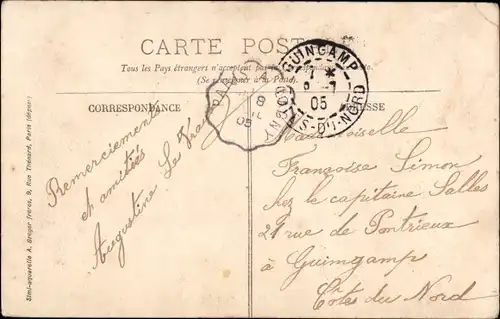 CARTE POSTALE
Tous les Pays étrangers n'acceptent pas
(Se renseigner à la Poste).
CORRESPONDANCE
GUINGAMP
1 *
8 -7
05
CÔTES-DU-NORD
PARIS A
8
05
Remerciements
et amitiés
Augustine Le
Mademoiselle
Françoise Simon
chez le capitaine Salles
21 rue de Pontrieux
à Guimgamp
Côtes du Nord
Simi-aquarelle A. Breger frères, 9, Rue Thénard, Paris (déposé)